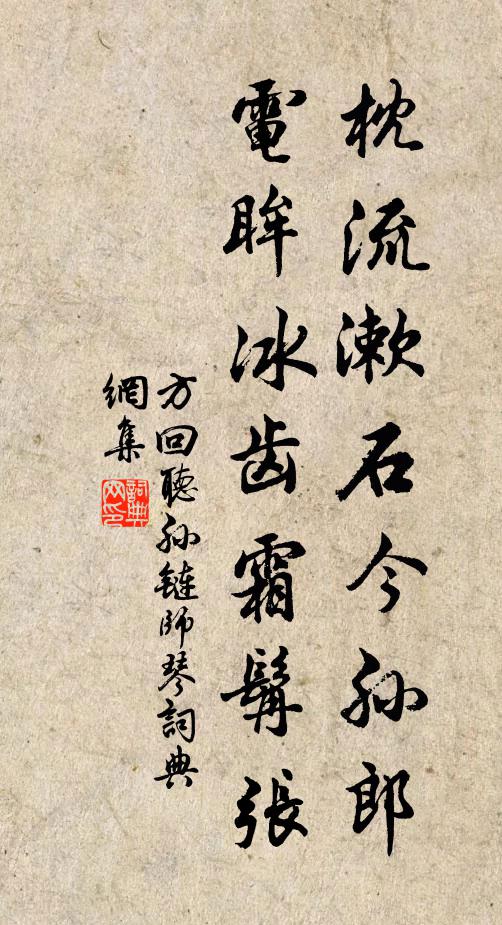 枕流漱石今孙郎
電眸冰齿霜髯張
方回聽孙鏈師琴詞典
網集
詞典網印